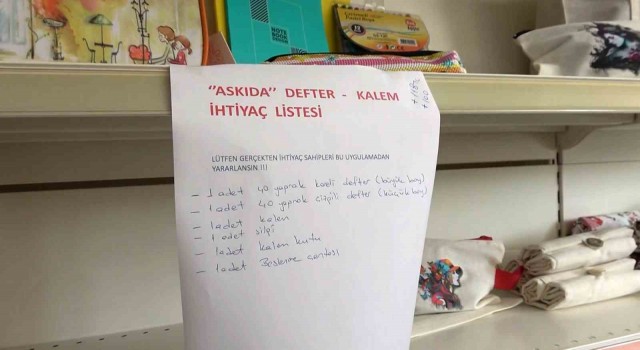 NOTE
BOOK
''ASKIDA'' DEFTER - KALEM
İHTİYAÇ LİSTESİ
LÜTFEN GERÇEKTEN İHTİYAÇ SAHİPLERİ BU UYGULAMADAN
YARARLANSIN !!!
- 1 adet 40 yaprak kareli defter (büyük boy)
- 1 adet 40 yaprak çizgili defter (küçük boy)
- 1 adet kalem
- 1 adet silgi
- 1 adet kalem kutu
- 1 adet Beslenme çantası